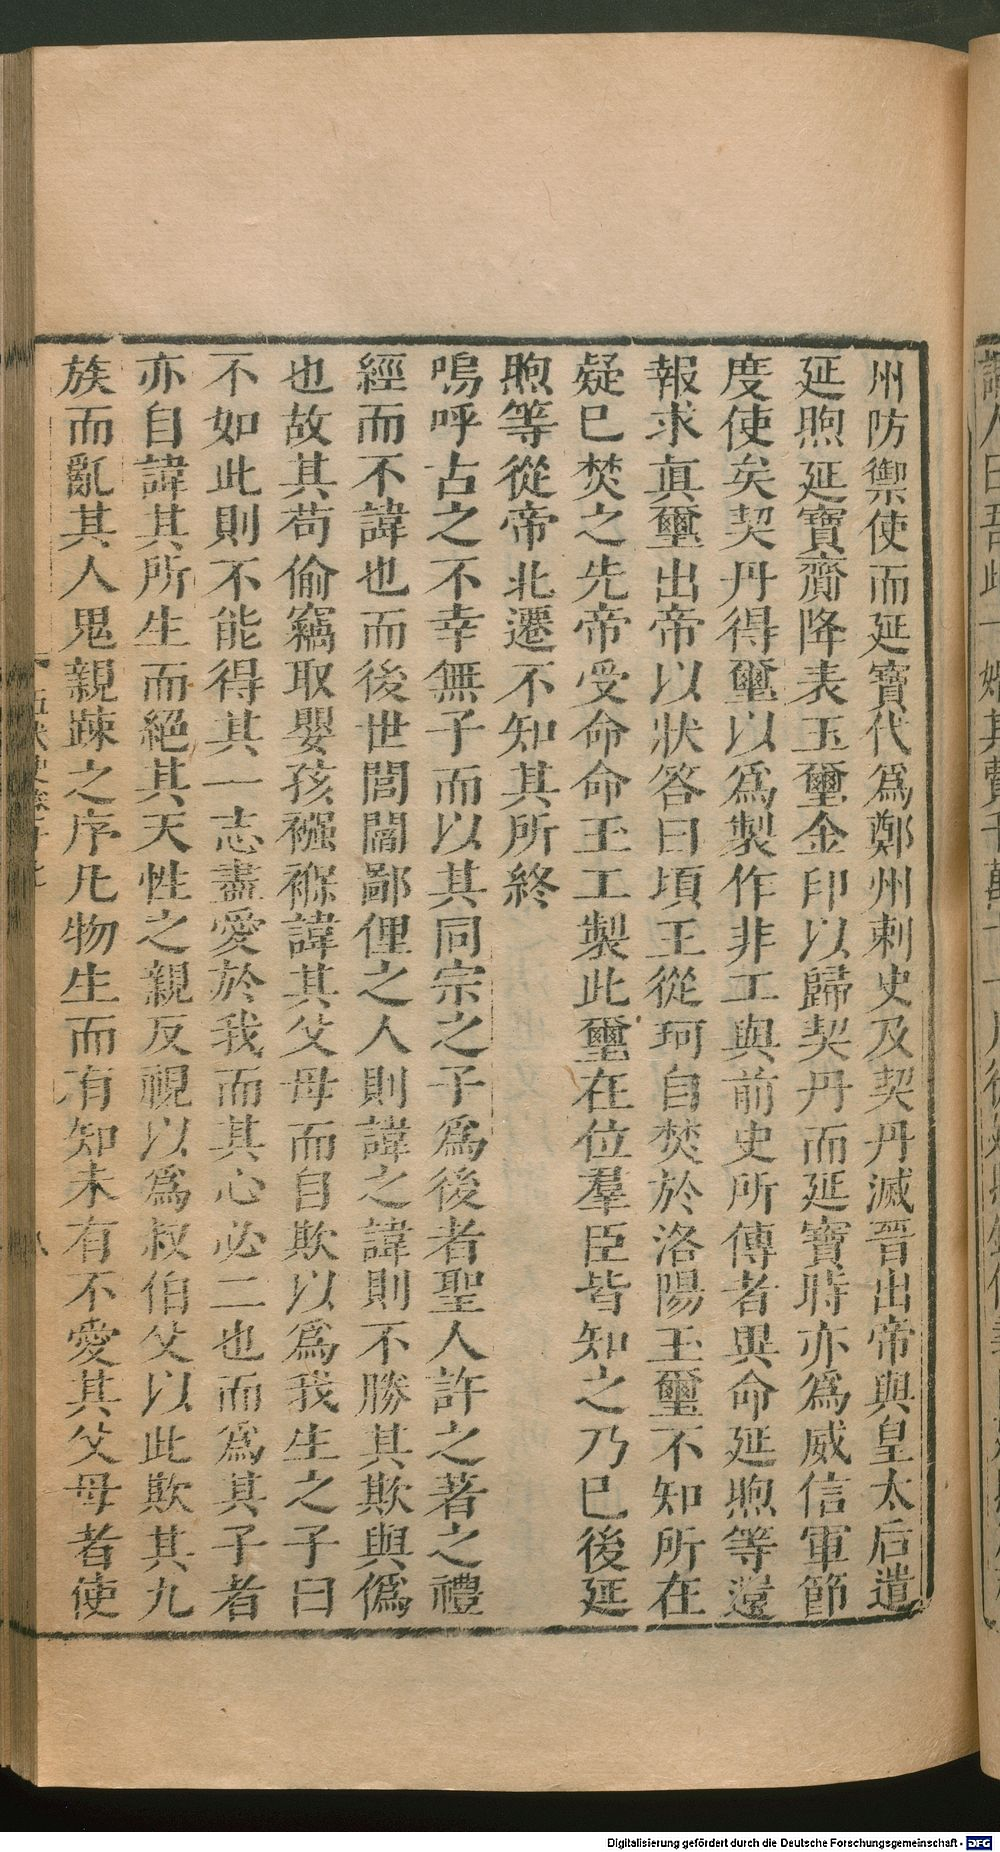 州防禦使而延寶代爲鄭州刺史及契丹滅晉出帝與皇太后遣
延煦延寶齎降表玉璽金印以歸契丹而延寶時亦爲威信軍節
度使矣契丹得璽以爲製作非工與前史所傳者異命延煦等還
報求真璽出帝以狀答曰頃王從珂自焚於洛陽玉璽不知所在
疑已焚之先帝受命命玉工製此璽在位羣臣皆知之乃已後延
煦等從帝北遷不知其所終
嗚呼古之不幸無子而以其同宗之子爲後者聖人許之著之禮
經而不諱也而後世閭閻鄙俚之人則諱之諱則不勝其欺與僞
也故其苟偷竊取嬰孩襁褓諱其父母而自欺以爲我生之子曰
不如此則不能得其一志盡愛於我而其心必二也而爲其子者
亦自諱其所生而絕其天性之親反視以爲叔伯父以此欺其九
族而亂其人鬼親疎之序凡物生而有知未有不愛其父母者使
Digitalisierung gefördert durch die Deutsche Forschungsgemeinschaft - DFG